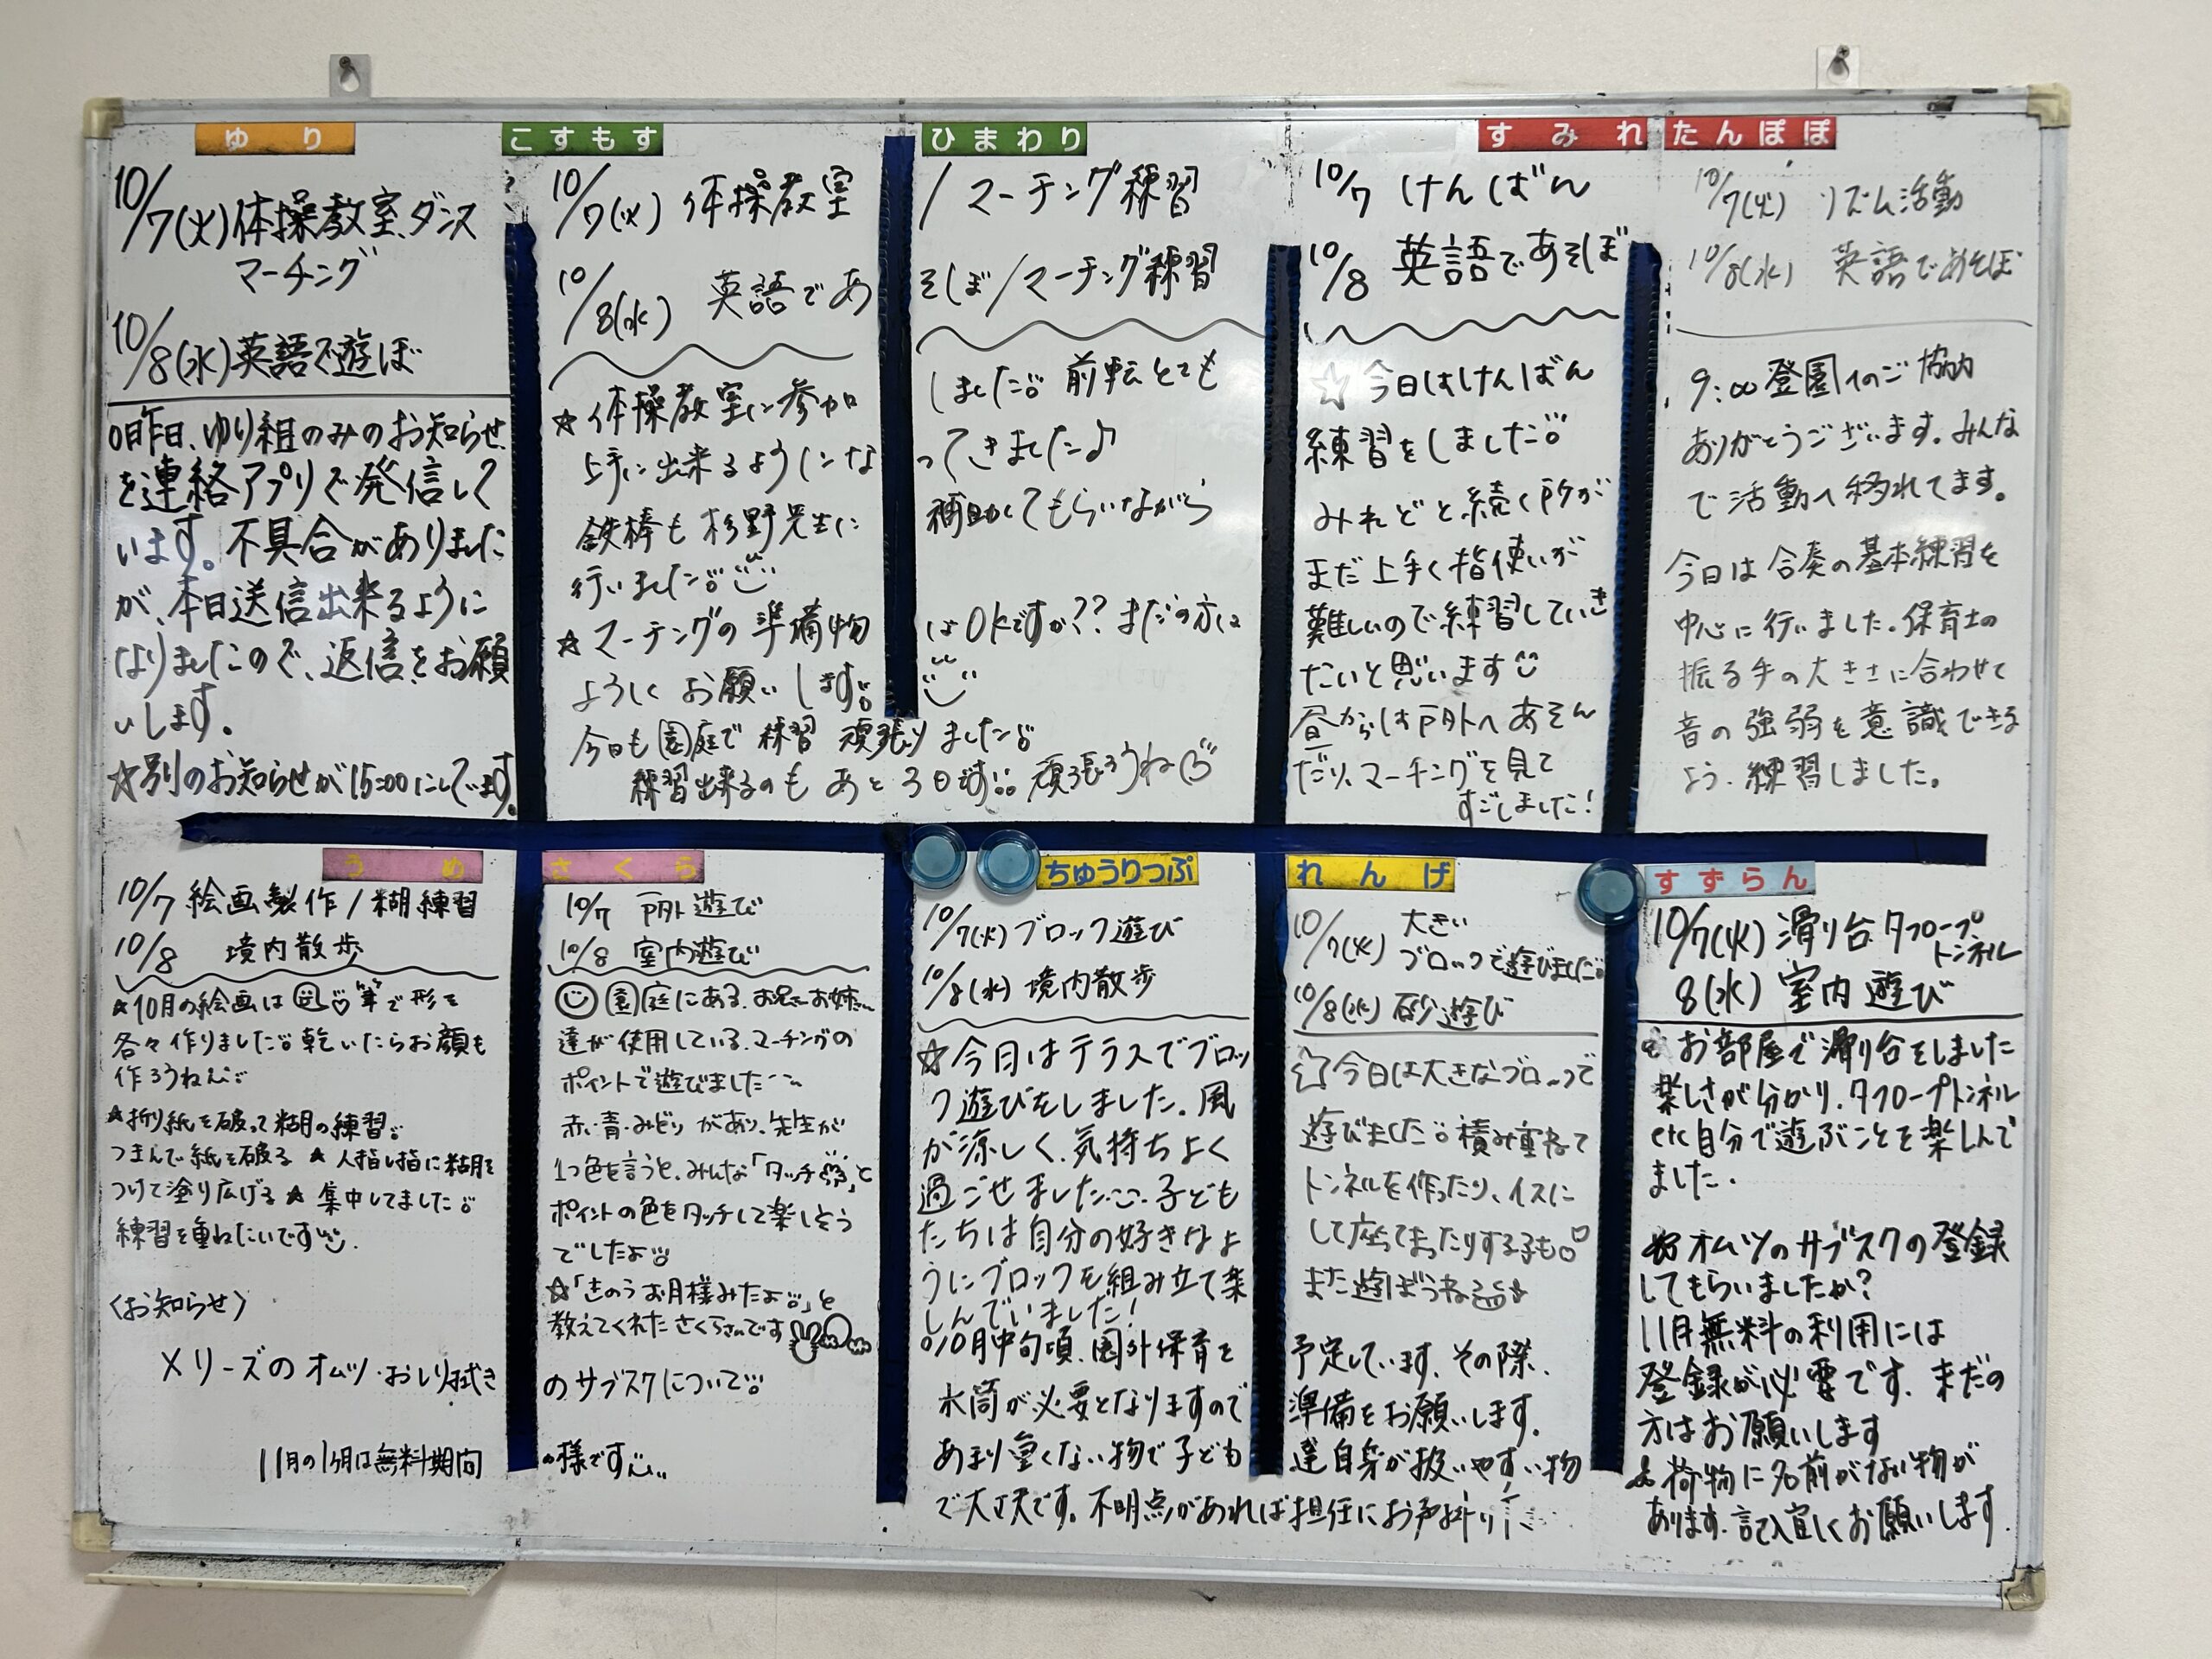 ゆり
10/7(火)体操教室、ダンス
マーチング
10/8(水)英語で遊ぼ
昨日、ゆり組のみのお知らせ
を連絡アプリで発信して
います。不具合がありました
が、本日送信出来るように
なりましたので、返信をお願
いします。
☆別のお知らせが15:00にしています。
こすもす ひまわり
10/7(火) 体操教室 / マーチング練習
10/8(水) 英語であそぼ/マーチング練習
★体操教室に参加しました。前転とても
上手に出来るようになってきました♪
鉄棒も杉野先生に補助してもらいながら
行いました。
★マーチングの準備物はOKですか??まだの方は
よろしくお願いします。
今日も園庭で練習頑張りました。
練習出来るのもあと3日です!!頑張ろうね
すみれ
10/7 けんばん
10/8 英語であそぼ
☆今日はけんばん
練習をしました。
みれどと続く所が
まだ上手く指使いが
難しいので練習していき
たいと思います
昼からは戸外へあそん
だり、マーチングを見て
すごしました!
たんぽぽ
10/7(火) リズム活動
10/8(水) 英語であそぼ
9:00登園へのご協力
ありがとうございます。みんな
で活動へ移れてます。
今日は合奏の基本練習を
中心に行いました。保育士の
振る手の大きさに合わせて
音の強弱を意識できる
よう、練習しました。
うめ
10/7 絵画製作/糊練習
10/8 境内散歩
★10月の絵画は 筆で形を
各々作りました。乾いたらお顔も
作ろうね
★折り紙を破って糊の練習
つまんで紙を破る ★人指し指に糊を
つけて塗り広げる ★集中してました
練習を重ねたいです
さくら
10/7 戸外遊び
10/8 室内遊び
園庭にある、お兄さんお姉さん
達が使用している、マーチングの
ポイントで遊びました
赤・青・みどりがあり、先生が
1つ色を言うと、みんな「タッチ」と
ポイントの色をタッチして楽しそう
でしたよ
☆「きのうお月様みたよ」と
教えてくれたさくらさんです
〈お知らせ〉
メリーズのオムツ・おしり拭きのサブスクについて
11月の1ヶ月は無料期間の様です
ちゅうりっぷ
10/7(火)ブロック遊び
10/8(水) 境内散歩
☆今日はテラスでブロッ
ク遊びをしました。風
が涼しく、気持ちよく
過ごせました。子ども
たちは自分の好きなよ
うにブロックを組み立て楽
しんでいました!
れんげ
10/7(火) 大きい
ブロックで遊びました
10/8(水) 砂遊び
☆今日は大きなブロックで
遊びました。積み重ねて
トンネルを作ったり、イスに
して座ってまったりする子も
また遊ぼうね
10月中旬頃、園外保育を予定しています。その際、
水筒が必要となりますので準備をお願いします。
あまり重くない物で子ども達自身が扱いやすい物
で大丈夫です。不明点があれば担任にお声掛け
すずらん
10/7(火)滑り台、タフロープ
トンネル
8(水)室内遊び
お部屋で滑り台をしました
楽しさが分かり、タフロープトンネル
etc自分で遊ぶことを楽しんで
ました。
オムツのサブスクの登録
してもらいましたか?
11月無料の利用には
登録が必要です。まだの
方はお願いします
荷物に名前がない物が
あります。記入宜しくお願いします